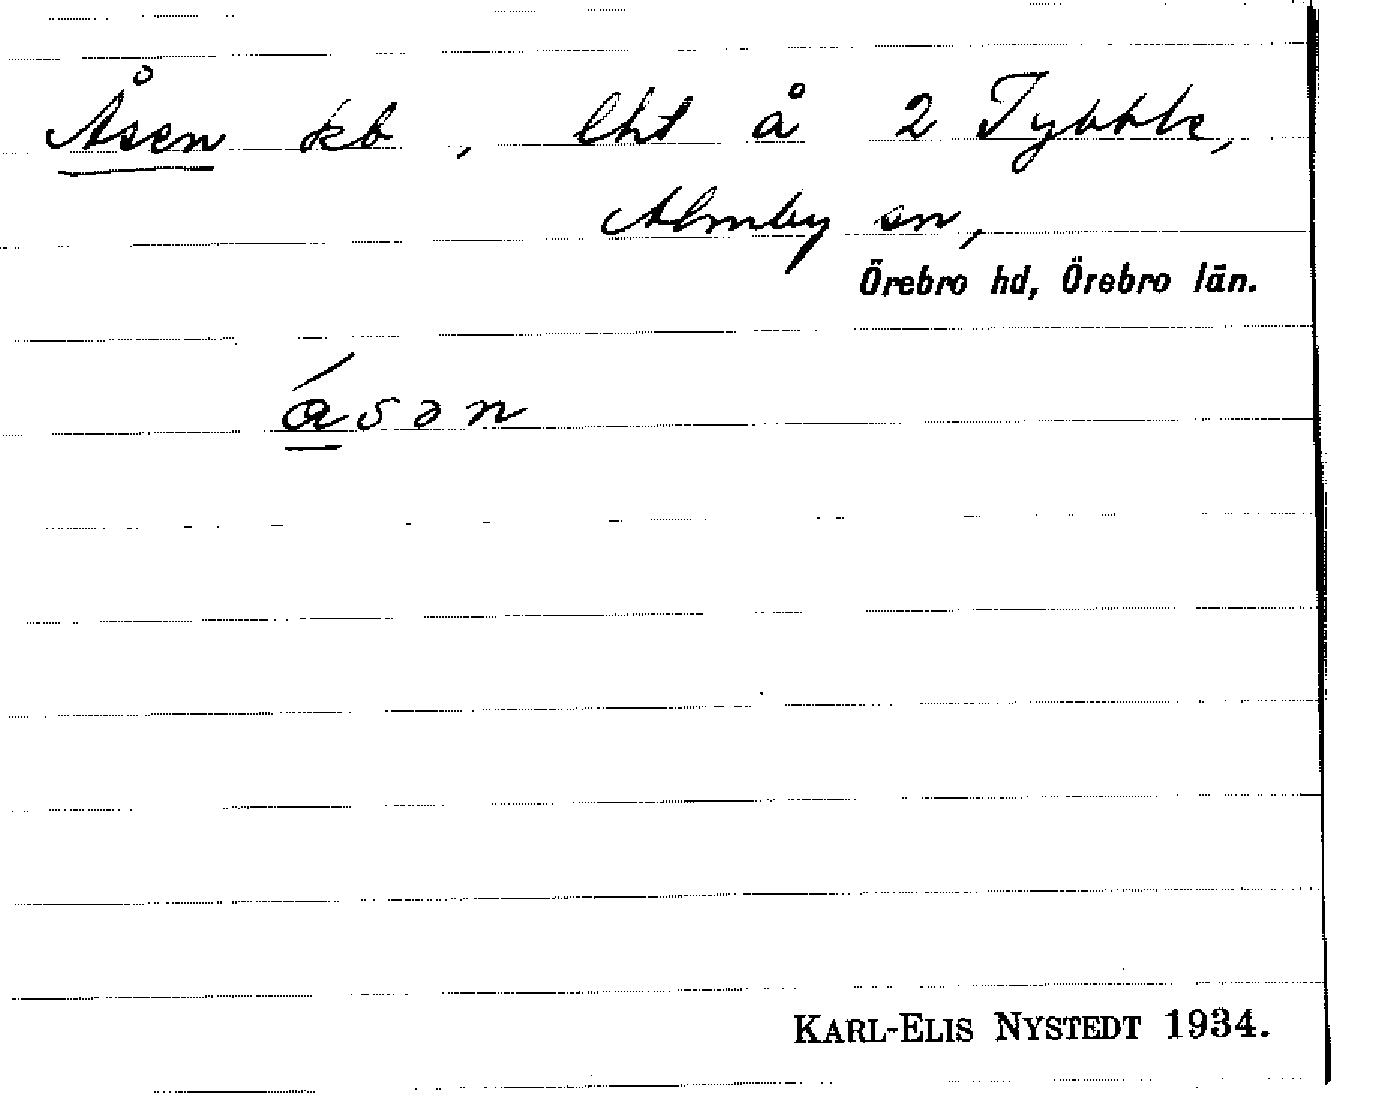 Åsen kb, lht å 2 Tybble,
Almby sn,
Örebro hd, Örebro län.
ɑ́sən
KARL-ELIS NYSTEDT 1934.